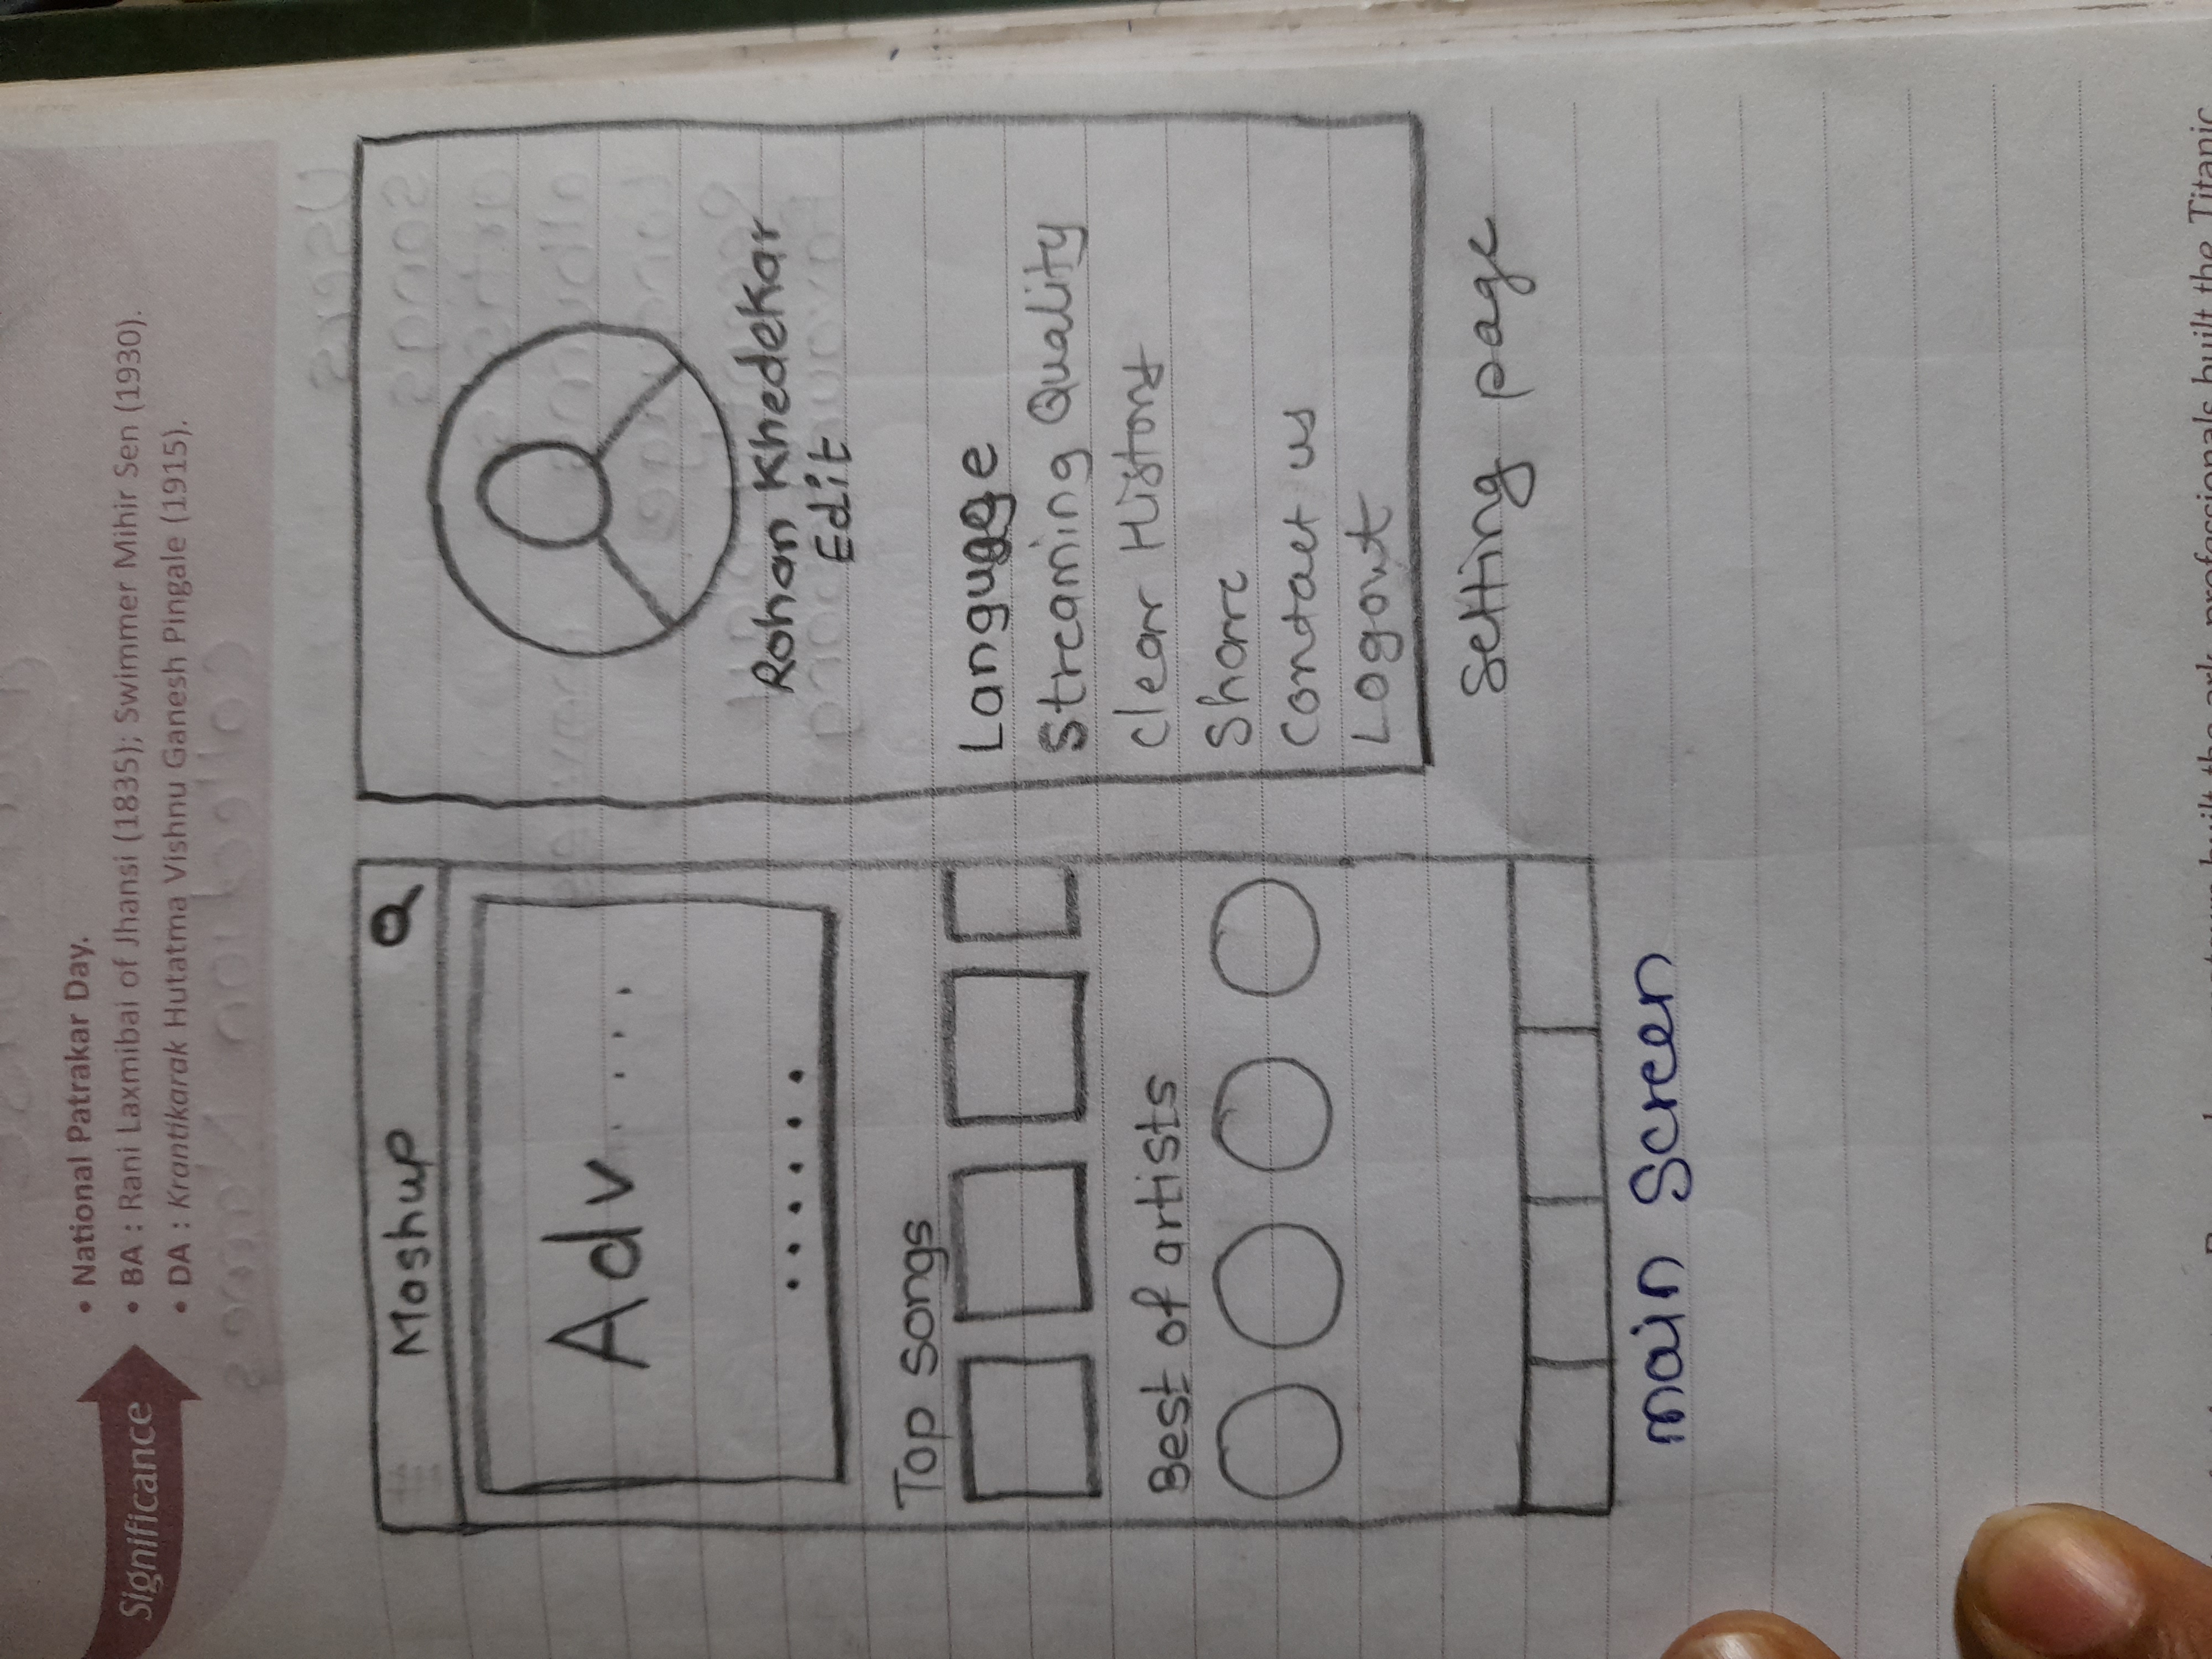 Significance
• National Patrakar Day.
• BA : Rani Laxmibai of Jhansi (1835); Swimmer Mihir Sen (1930).
• DA : Krantikarak Hutatma Vishnu Ganesh Pingale (1915).
Collection Names
Users
Songs
artists
Mashup
Adv.....
......
Top songs
Best of artists
main Screen
Rohan Khedekar
Edit
Language
Streaming Quality
clear History
Share
Contact us
Logout
Setting page
built the ark, professionals built the Titanic.